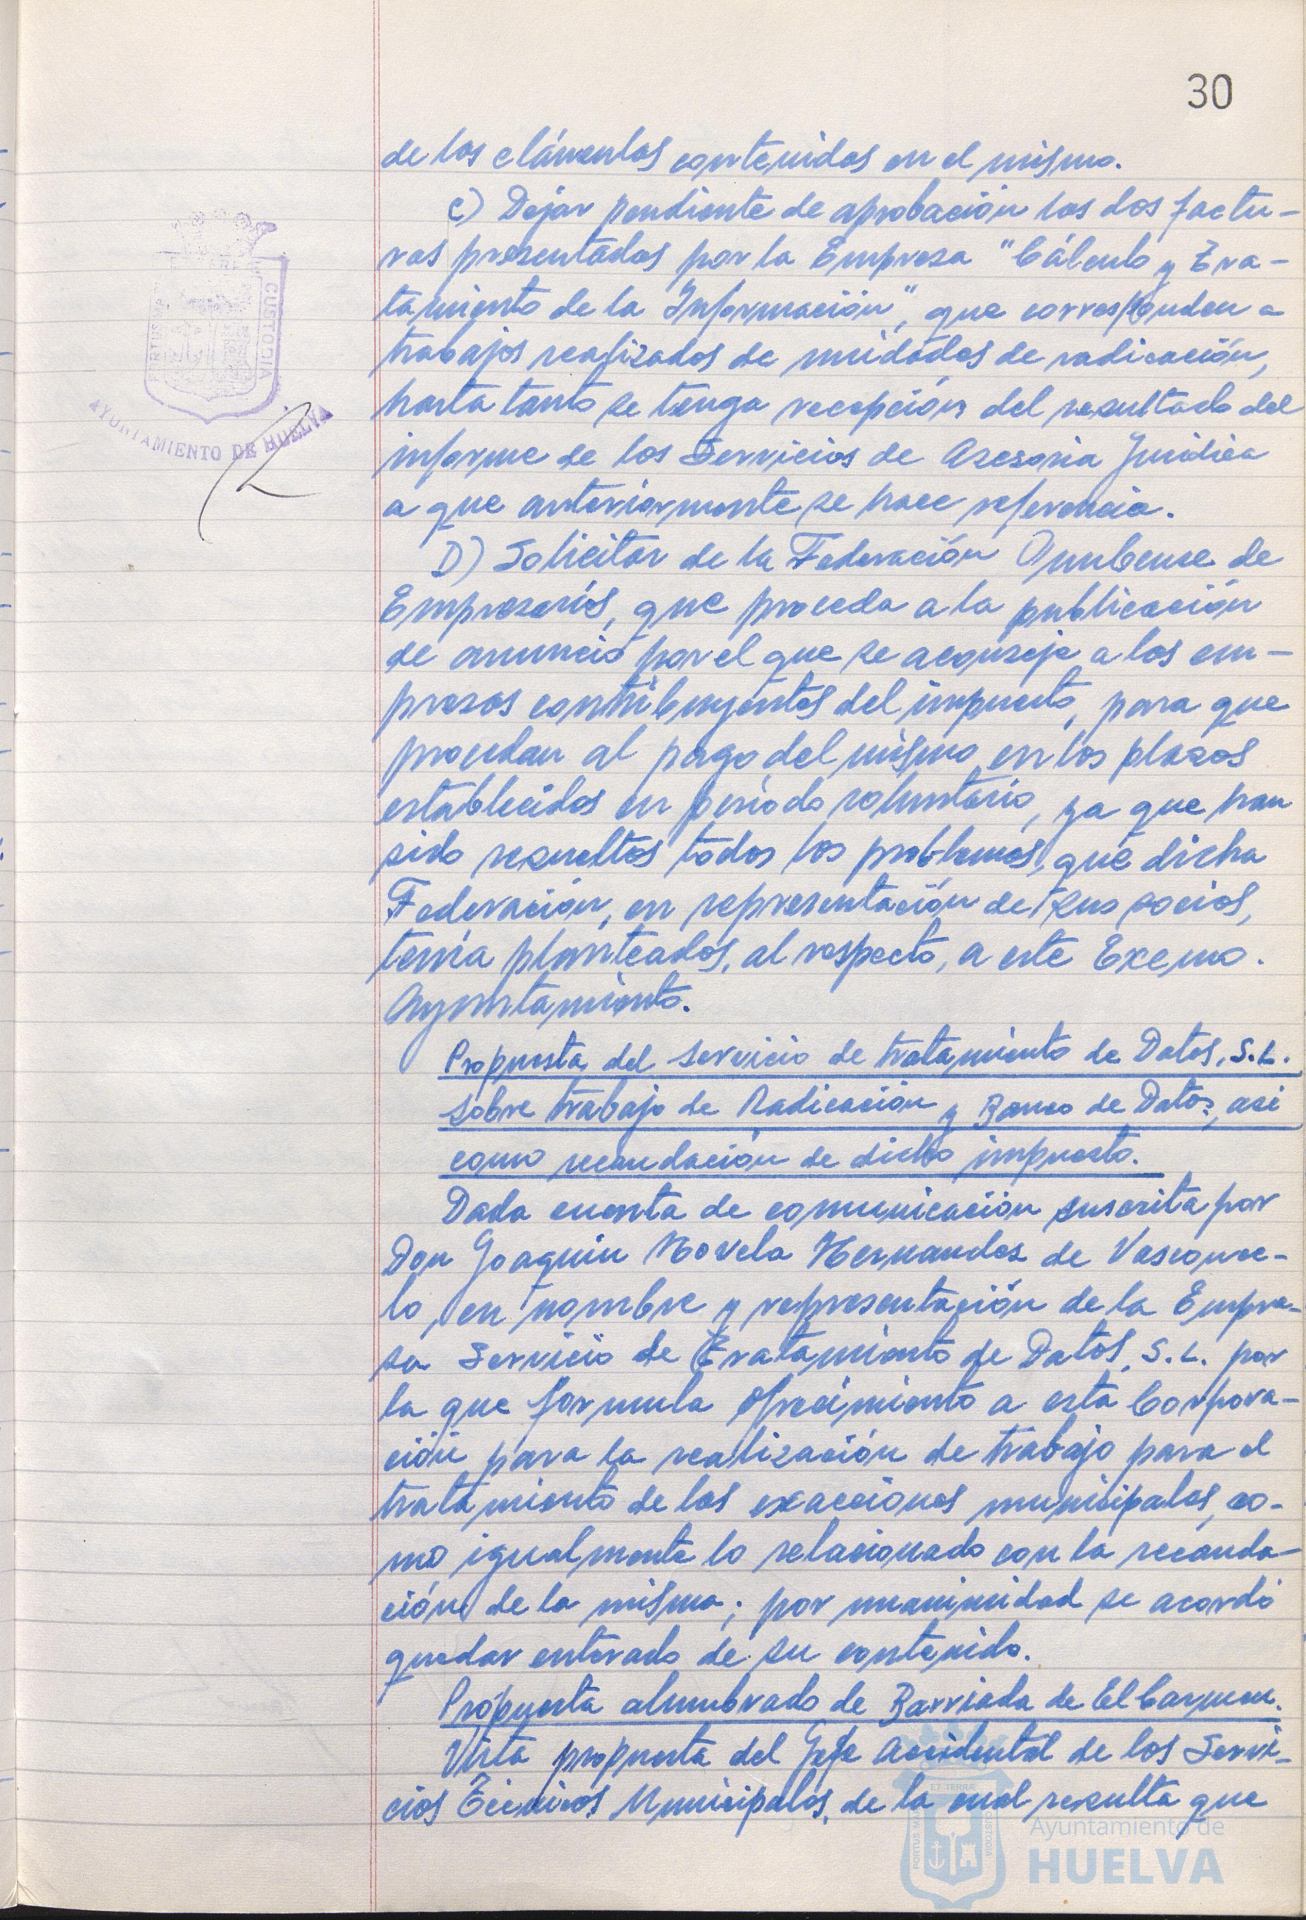 30
de las cláusulas contenidas en el mismo.
C) Dejar pendiente de aprobación las dos factu-
ras presentadas por la Empresa "Cálculo y Tra-
tamiento de la Información", que corresponden a
trabajos realizados de unidades de radicación,
hasta tanto se tenga recepción del resultado del
informe de los Servicios de Asesoria Juridica
a que anteriormente se hace referencia.
D) Solicitar de la Federación Onubense de
Empresarios, que proceda a la publicación
de anuncio por el que se aconseje a las em-
presas contribuyentes del impuesto, para que
procedan al pago del mismo en los plazos
establecidos en período voluntario, ya que han
sido resueltos todos los problemas, que dicha
Federación, en representación de sus socios,
tenía planteados, al respecto, a este Excmo.
Ayuntamiento.
Propuesta del Servicio de tratamiento de Datos, S.L.
sobre trabajo de Radicación y Banco de Datos, asi
como recaudación de dicho impuesto.
Dada cuenta de comunicación suscrita por
Don Joaquin Novela Hernandez de Vasconce-
lo, en nombre y representación de la Empre-
sa Servicio de Tratamiento de Datos, S.L. por
la que formula ofrecimiento a esta Corpora-
ción para la realización de trabajo para el
tratamiento de las exacciones municipales, co-
mo igualmente lo relacionado con la recauda-
ción de la misma; por unanimidad se acordó
quedar enterado de su contenido.
Propuesta alumbrado de Barriada de El Carmen.
Vista propuesta del Jefe Accidental de los Servi-
cios Técnicos Municipales, de la cual resulta que
PORTUS MA
CUSTODIA
AYUNTAMIENTO DE HUELVA
ET TERRÆ
PORTUS MA
CUSTODIA
Ayuntamiento de
HUELVA